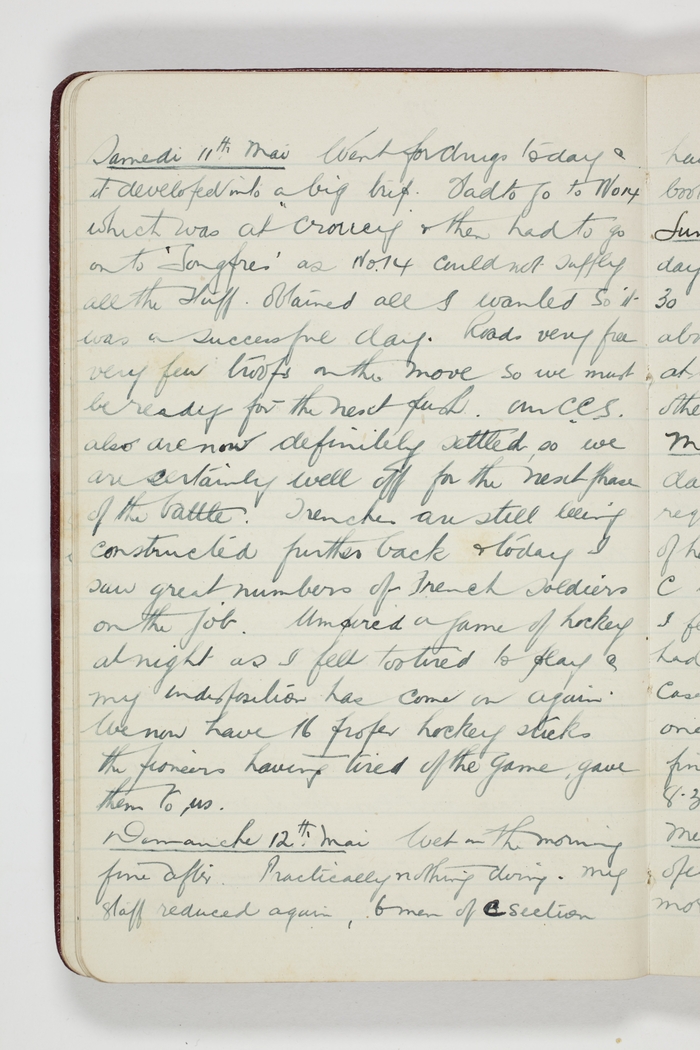 Samedi 11th Mai Went for drugs to day &
it developed into a big trip. Had to go to No14
which was at "Crouy" & then had to go
on to 'Longpres' as No.14 could not supply
all the stuff. Obtained all I wanted so it
was a successful day. Roads very free
very few troops on the move so we must
be ready for the next push. Our CCS.
also are now definitely settled, so we
are certainly well off for the next phase
of the battle. Trenches are still being
constructed further back & today I
saw great numbers of French soldiers
on the job. Umpired a game of hockey
at night as I felt too tired to play &
my indisposition has come on again.
We now have 16 proper hockey sticks
the pioneers having tired of the game, gave
them to us.
Demanche 12th Mai Wet in the morning
fine after. Practically nothing doing. My
staff reduced again, 6 men of C section
hav
boo
Sun
day
30
abo
at
othe
M
da
req
of he
C
I fe
had
Case
one
fin
8.3
Me
ope
mo